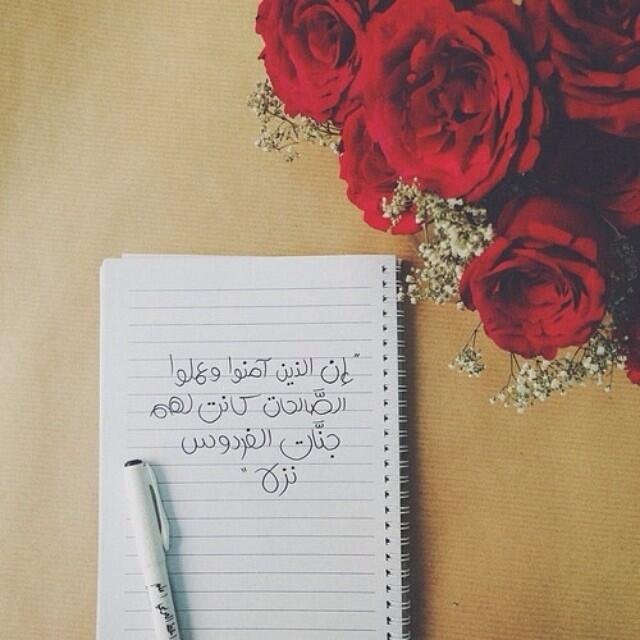 "إن الذين آمنوا وعملوا
الصَّالحات كانت لهم
جنَّات الفردوس
نزلا"